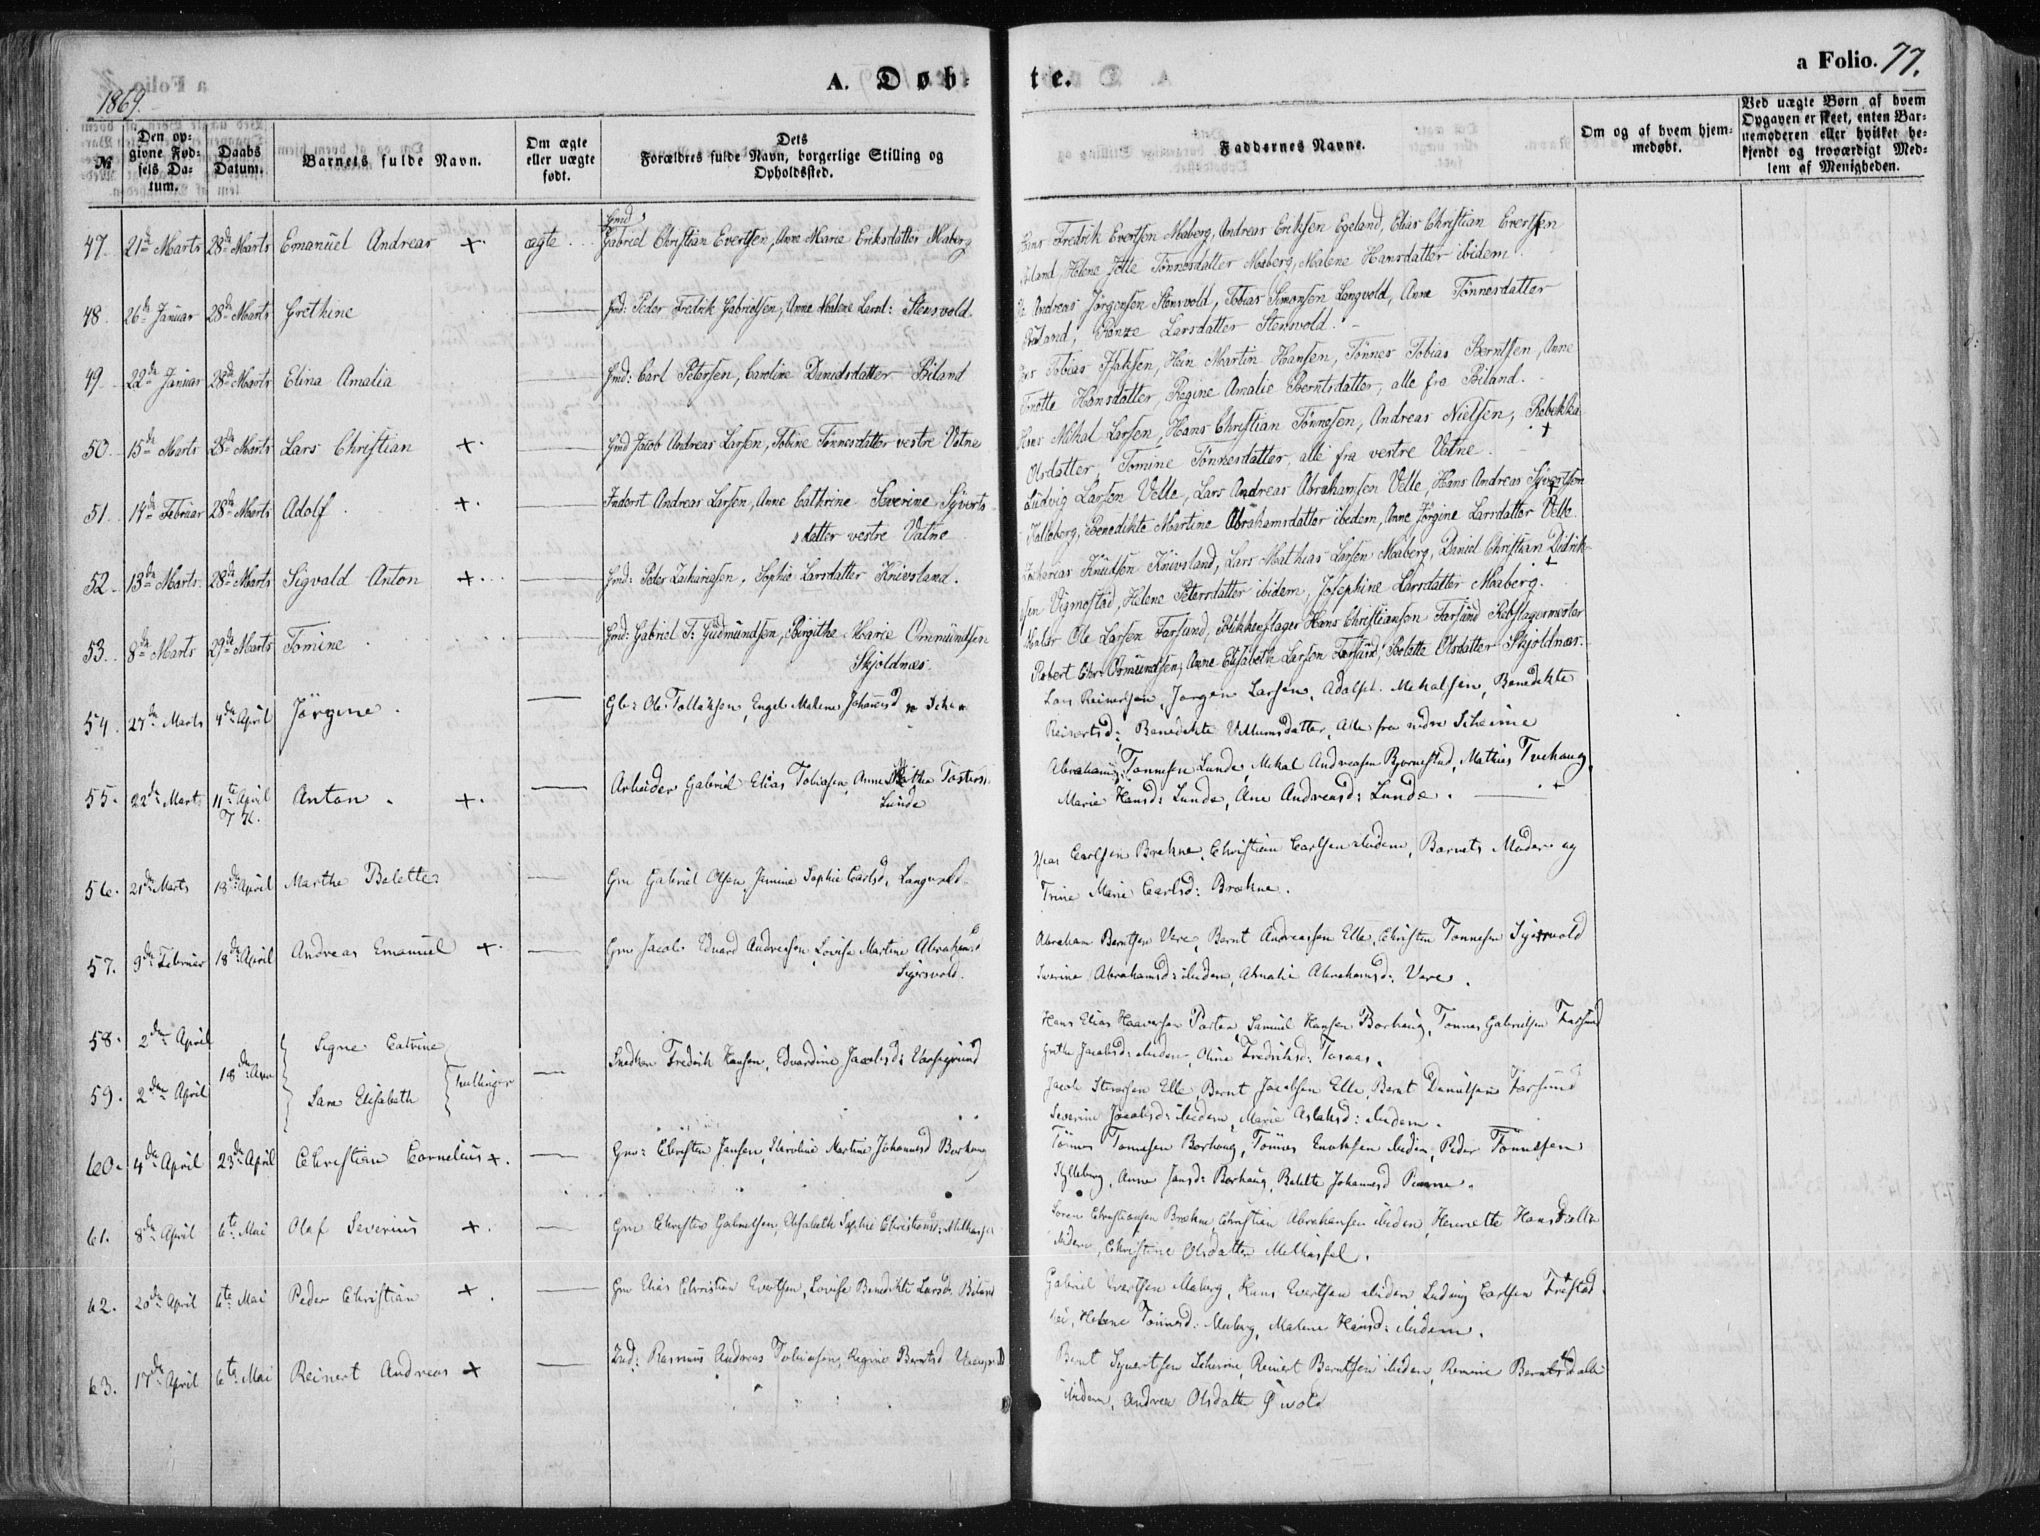 A. Døb-
te.
a Folio. 77.
1869.
№
Den op-
givne Fød-
sels Da-
tum.
Daabs
Datum.
Barnets fulde Navn.
Om ægte
eller uægte
født.
Dets
Forældres fulde Navn, borgerlige Stilling og
Opholdssted.
Faddernes Navne.
Om og af hvem hjem-
medøbt.
Ved uægte Børn af hvem
Opgaven er skeet, enten Bar-
nemoderen eller hvilket be-
kjendt og troværdigt Med-
lem af Menigheden.
47. 21de Marts 28de Marts Emanuel Andreas + ægte Gmd Gabriel Christian Evertsen, Anne Marie Eriksdatter Maberg
Hans Fredrik Evertsen Maberg, Andreas Eriksen Egeland, Elias Christian Evertsen
Biland, Helene Jette Tønnesdatter Maberg, Malene Hansdatter ibidem.
48. 26de Januar 28de Marts Grethine — Gmd: Peder Fredrik Gabrielsen, Anne Malene Larsd: Stensvold.
Andreas Jørgensen Stensvold, Tobias Simonsen Langvold, Anne Tønnesdatter
Biland, Larsdatter Stensvold.
49. 22de Januar 28de Marts Elina Amalia — Gmd: Carl Petersen, Caroline Danielsdatter Biland
Tobias Isaksen, Hein Martin Hansen, Tønnes Tobias Berntsen, Anne
Hansdatter, Regine Amalie Berntsdatter, alle fra Biland.
50. 15de Marts 28de Marts Lars Christian + — Gmd Jacob Andreas Larsen, Tobine Tønnesdatter vestre Vatne
Hans Mikal Larsen, Hans Christian Tønnesen, Andreas Nielsen, Rebekka
Olsdatter, Tomine Tønnesdatter, alle fra vestre Vatne.
51. 14de Februar 28de Marts Adolf + — Inderst Andreas Larsen, Anne Cathrine Severine Syverts-
datter vestre Vatne
Ludvig Larsen Velle, Lars Andreas Abrahamsen Velle, Hans Andreas Syvertsen
Kalleberg, Benedikte Martine Abrahamsdatter ibidem, Anne Jørgine Larsdatter Velle.
52. 13de Marts. 28de Marts Sigvald Anton + — Gmd: Peder Zachariasen, Sophie Larsdatter Knivsland.
Zacharias Knudsen Knivsland, Lars Mathias Larsen Maberg, Daniel Christian Didrik-
sen Vigmostad, Helene Petersdatter ibidem, Josephine Larsdatter Maberg.
53. 8de Marts 29de Marts Tomine — Gmd: Gabriel T: Gudmundsen, Birgithe Marie Omundsen
Skjoldnæs.
Maler Ole Larsen Farsund, Blikkenslager Hans Christiansen Farsund Rebslagermester
Robert Chr. Osmundsen, Anne Elisabeth Larsen Farsund, Bolette Olsdatter Skjoldnæs.
54. 27de Marts 4de April Jørgine — Gbr: Ole Tollaksen, Engel Malene Johannesd
Lars Reinertsen, Jørgen Larsen, Adolph Mekalsen, Benedikte
Reinertsd:, Benedikte Villumsdatter, Alle fra nedre Scheime
55. 22de Marts 11te April Anton + — Arbeider Gabriel Elias Tobiasen, Anne
Lunde
Abraham Tønnesen Lunde, Mekal Andreasen Bjørnestad, Mathias Tvehaug,
Marie Hansd: Lunde, Ane Andreasd: Lunde.
56. 21de Marts 18de April Marthe Bolette — Gm Gabriel Olsen, Jemine Sophie Carlsd, Langvold
Carlsen Brekne, Christian Carlsen ibidem, Barnets Moder og
Trine Marie Carlsd: Brekne.
57. 9de Februar 18de April Andreas Emanuel + — Gm Jacob Eduard Andreasen, Lovise Martine Abrahamsd
Sigersvold.
Abraham Berntsen Vere, Bernt Andreassen Elle, Christen Tønnesen Sigersvold
Severine Abrahamsd: ibidem, Amalie Abrahamsd: Vere.
58. 2den April Signe Catrine
59. 2den April 18de April Sara Elisabeth Tvillinger — Snedker Fredrik Hansen, Edvardine Jacobsd:
Hans Elias Haaversen Parten, Samuel Hansen Borhaug, Tønnes Gabrielsen Farsund
Jacobsd: ibidem, Oline Fredriksd:
Jacob Elle, Bernt Jacobsen Elle, Bernt Danielsen Farsund
Severine Jacobsd: ibidem, Marie Aslaksd: ibidem.
60. 4de April 23de April Christian Cornelius + — Gm: Christen Jansen, Karoline Martine Johannesd Borhaug
Tønnes Tønnesen Borhaug, Tønnes Enoksen ibidem, Peder Tønnesen
Anne Jansd: Borhaug, Bolette Johannesd
61. 8de April 6te Mai Olaf Severius + — Gm Christen Gabrielsen, Elisabeth Sophie Christiansd:
Søren Christiansen Brekne, Christian Abrahamsen ibidem, Henriette Hansdatter
ibidem, Christine Olsdatter
62. 20de April 6te Mai Peder Christian + — Gm Elias Christian Evertsen, Lovise Benedikte Larsd: Biland
Gabriel Evertsen Maberg, Hans Evertsen ibidem, Ludvig Carlsen
Helene Tønnesd: Maberg, Malene Hansd: ibidem.
63. 17de April 6te Mai Reinert Andreas + — Ind: Rasmus Andreas Tobiasen, Regine Berntsd
Bernt Syvertsen Scheime, Reinert Berntsen ibidem, Berntsdatter
ibidem, Andrea Olsdatter